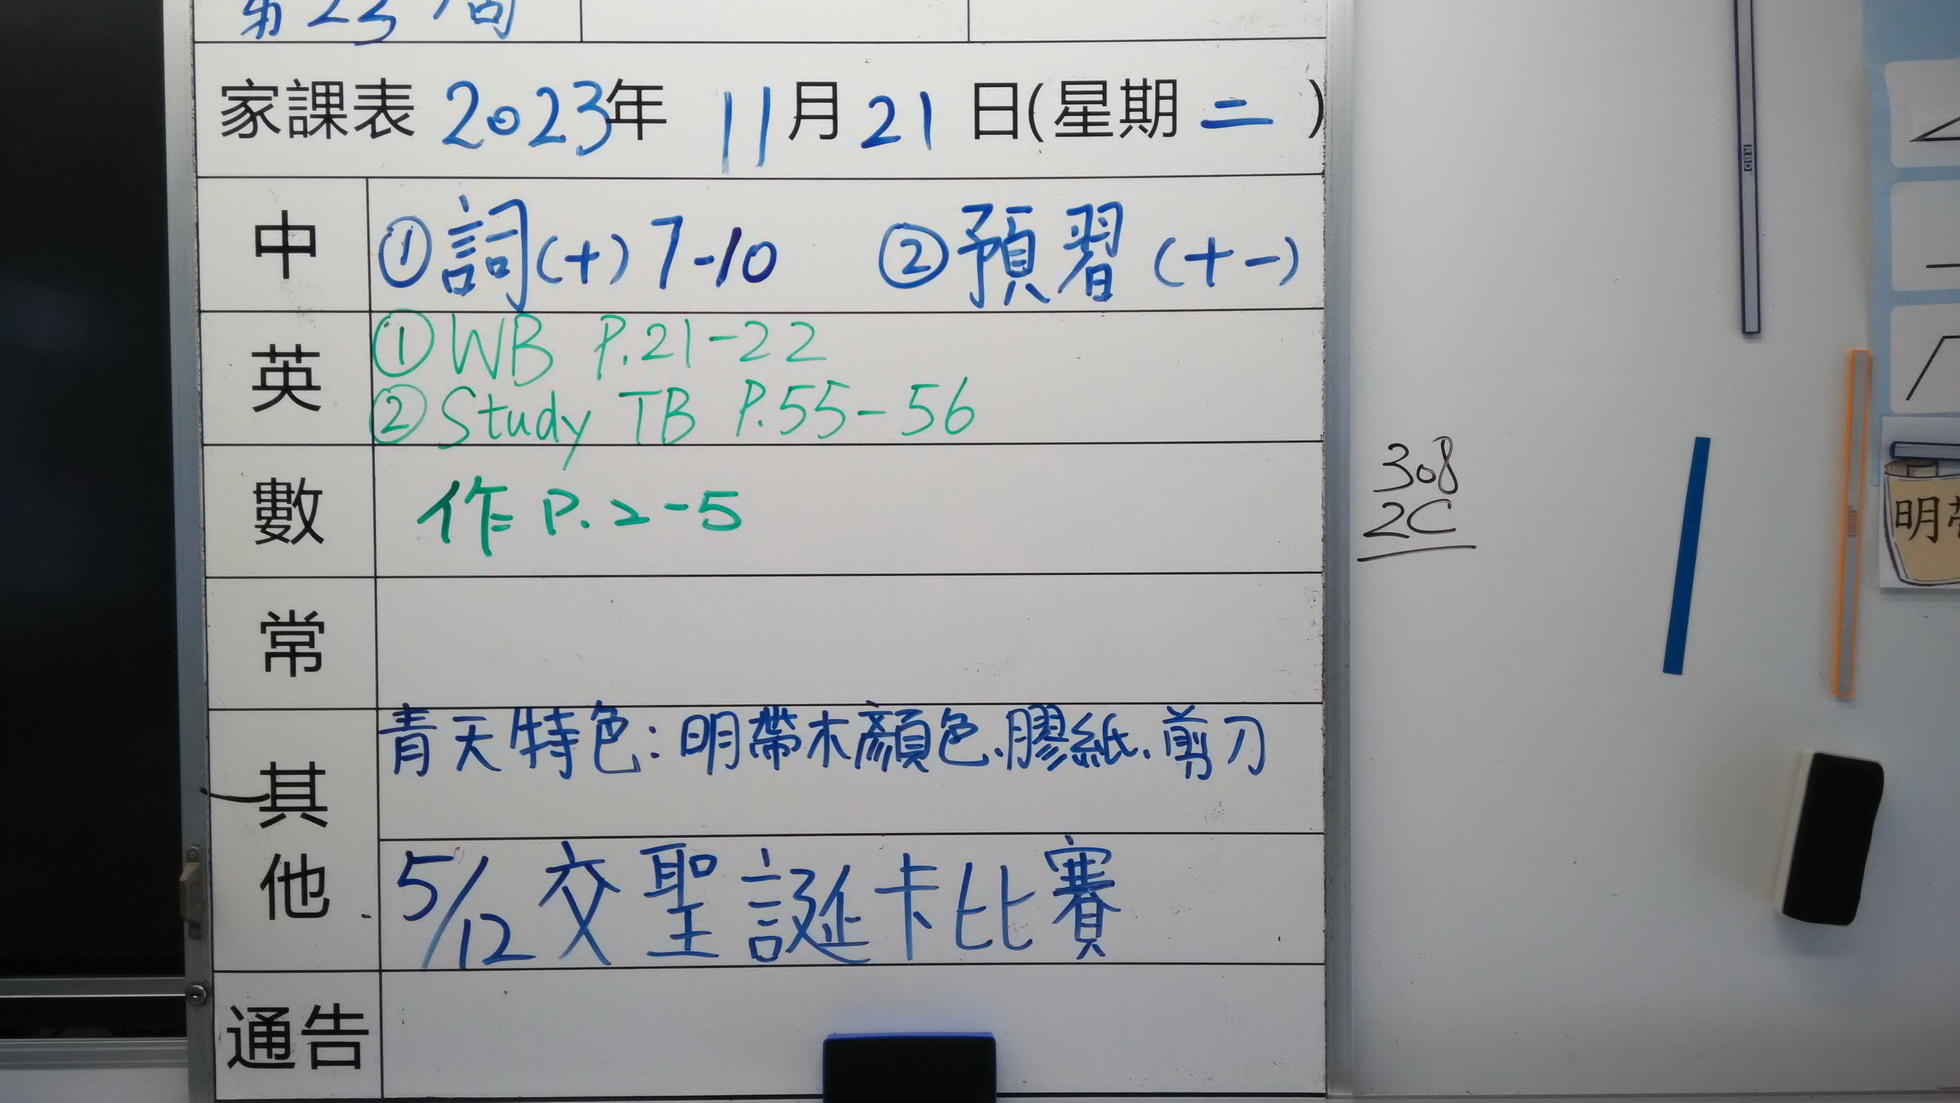 第23周
家課表 2023年 11月21日(星期二)
中 ①詞(十)7-10 ②預習(十一)
英 ①WB P.21-22
②Study TB P.55-56
數 作P.2-5
常
其他 青天特色:明帶木顏色、膠紙、剪刀
5/12交聖誕卡比賽
通告
308
2C
明帶